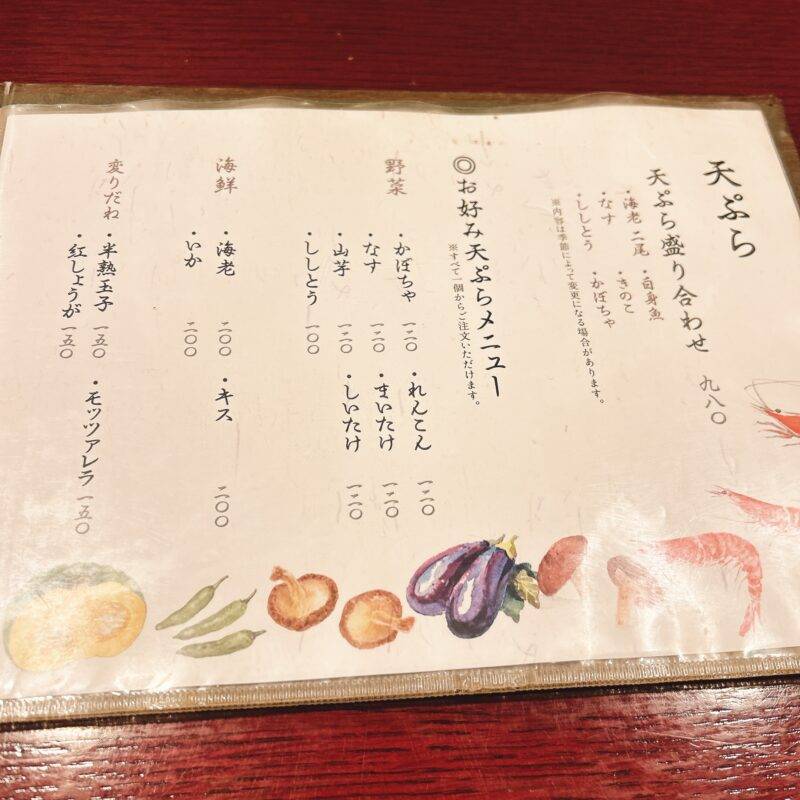 天ぷら
天ぷら盛り合わせ 九八〇
・海老二尾 ・白身魚
・なす ・きのこ
・ししとう ・かぼちゃ
※内容は季節によって変更になる場合があります。
◎お好み天ぷらメニュー
※すべて一個からご注文いただけます。
野菜
・かぼちゃ 一二〇 ・れんこん 一二〇
・なす 一二〇 ・まいたけ 一二〇
・山芋 一二〇 ・しいたけ 一二〇
・ししとう 一〇〇
海鮮
・海老 二〇〇 ・キス 二〇〇
・いか 二〇〇
変りだね
・半熟玉子 一五〇 ・モッツアレラ 一五〇
・紅しょうが 一五〇